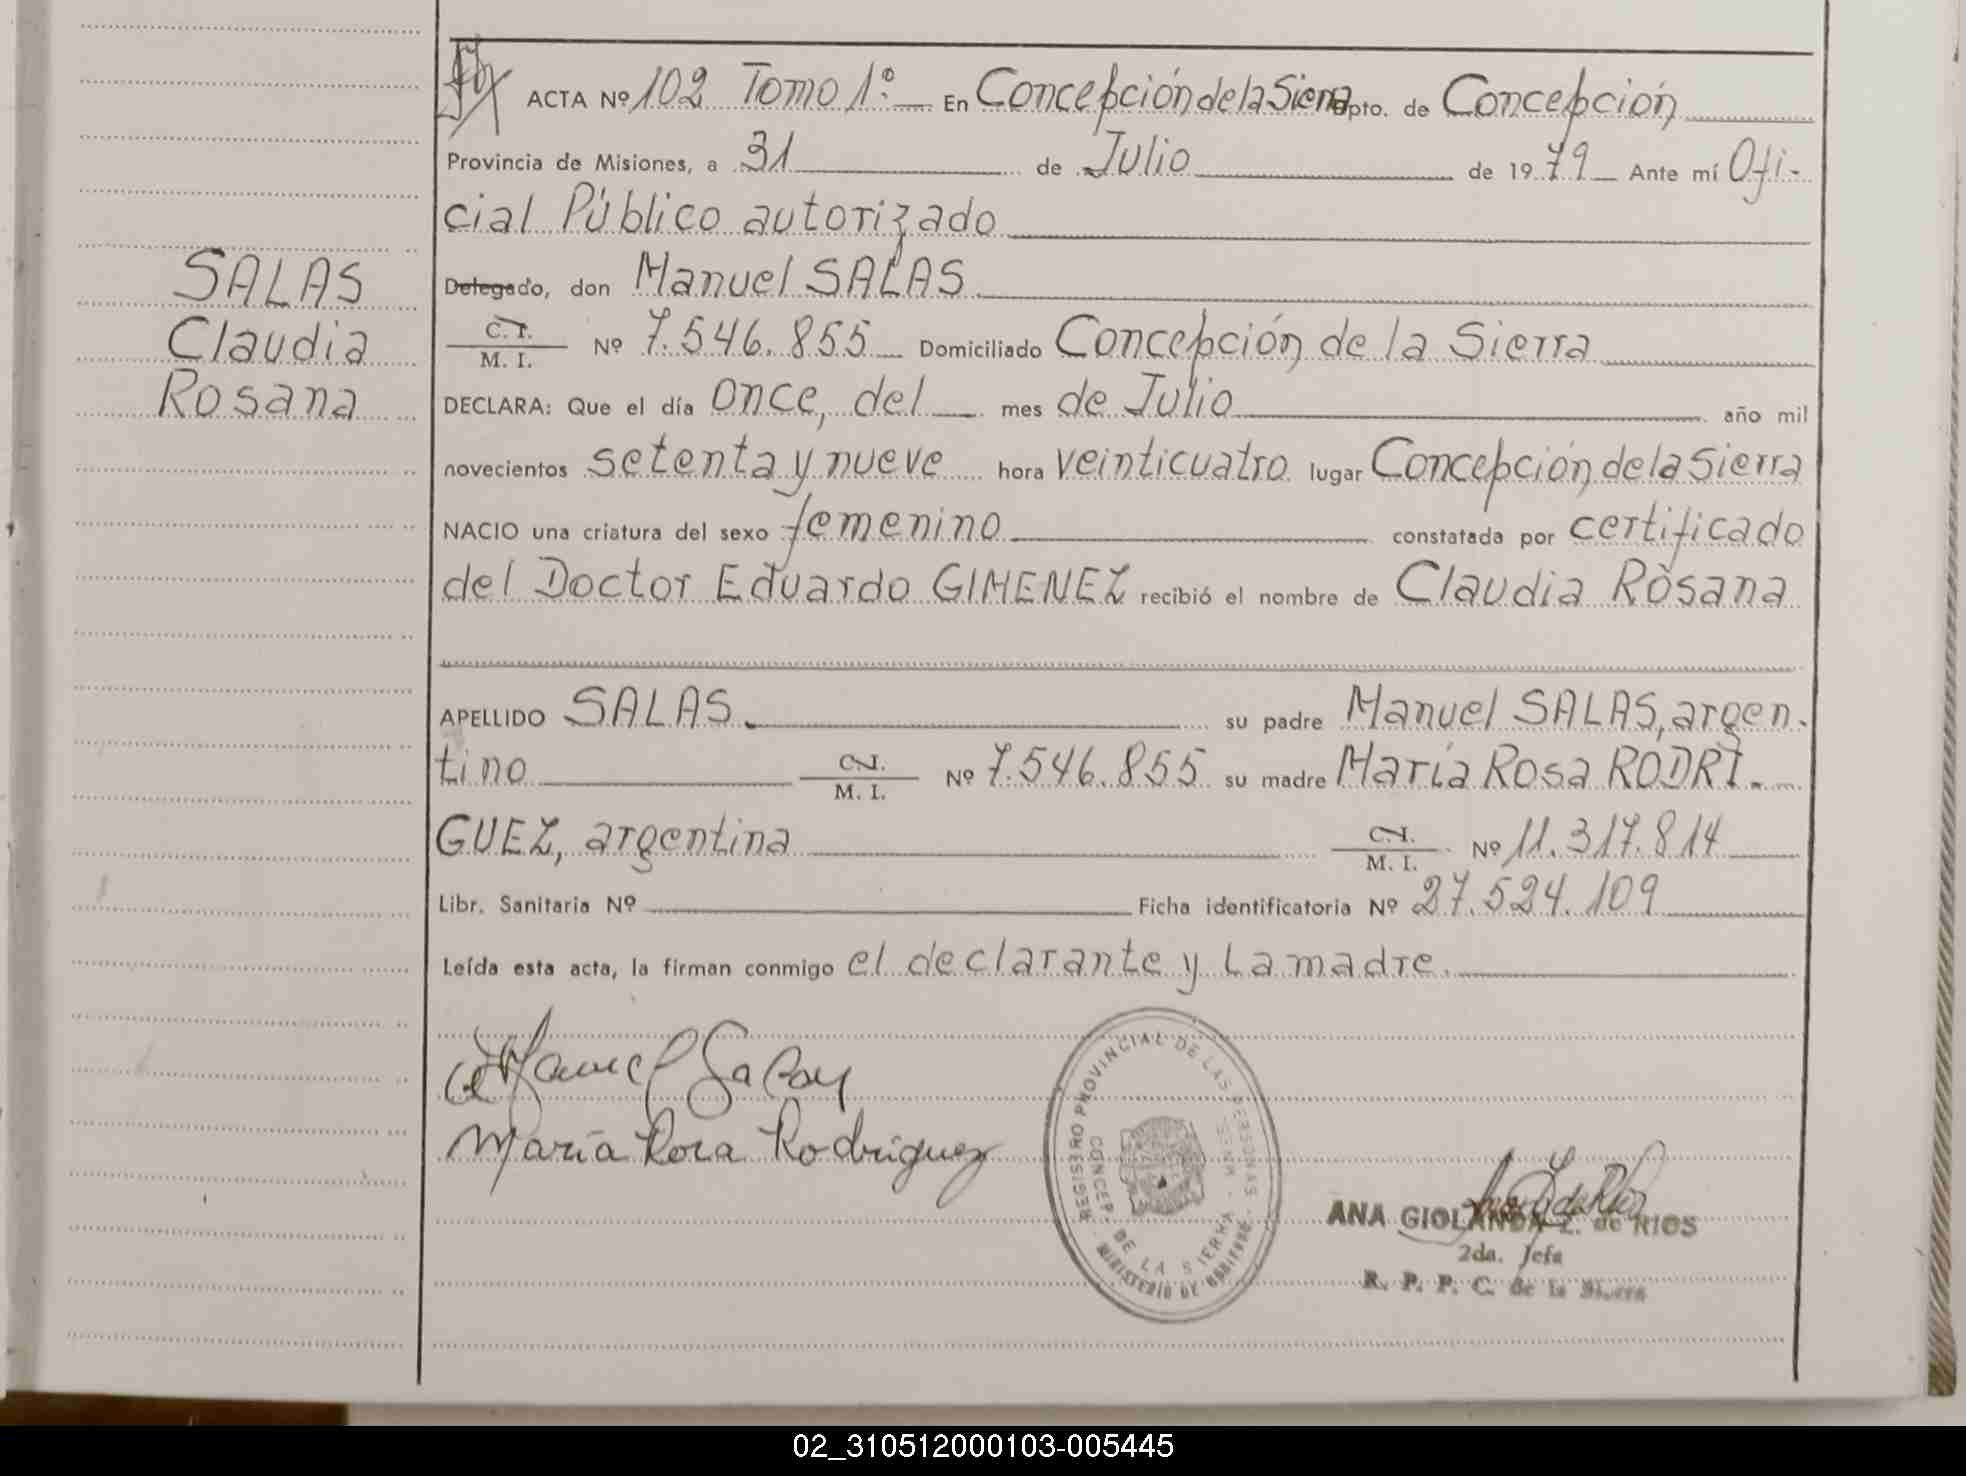 ACTA Nº 102 Tomo 1º.— En Concepción de la Sierra Dpto. de Concepción
Provincia de Misiones, a 31 de Julio de 1979 Ante mí Ofi-
cial Público autorizado
Delegado, don Manuel SALAS
C. I. / M. I. Nº 7.546.855 Domiciliado Concepción de la Sierra
DECLARA: Que el día once, del mes de Julio año mil
novecientos setenta y nueve hora veinticuatro lugar Concepción de la Sierra
NACIO una criatura del sexo femenino constatada por certificado
del Doctor Eduardo GIMENEZ recibió el nombre de Claudia Rosana
APELLIDO SALAS. su padre Manuel SALAS, argen-
tino C. I. / M. I. Nº 7.546.855 su madre María Rosa RODRI-
GUEZ, argentina C. I. / M. I. Nº 11.317.814
Libr. Sanitaria Nº Ficha identificatoria Nº 27.524.109
Leída esta acta, la firman conmigo el declarante y La madre.
SALAS
Claudia
Rosana
Manuel Salas
María Rosa Rodriguez
REGISTRO PROVINCIAL DE LAS PERSONAS
CONCEP. DE LA SIERRA
MINISTERIO DE GOBIERNO
ANA GIOLANDA Z. de RIOS
2da. Jefa
R. P. P. C. de la Sierra
02_310512000103-005445